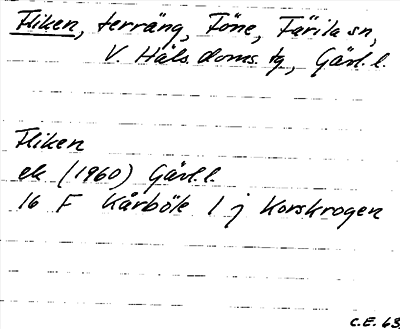 Fliken, terräng, Föne, Färila sn,
V. Häls. doms. tg, Gävl. l.
Fliken
ek (1960) Gävl. l.
16 F Kårböle 1 j Korskrogen
C.E. 63